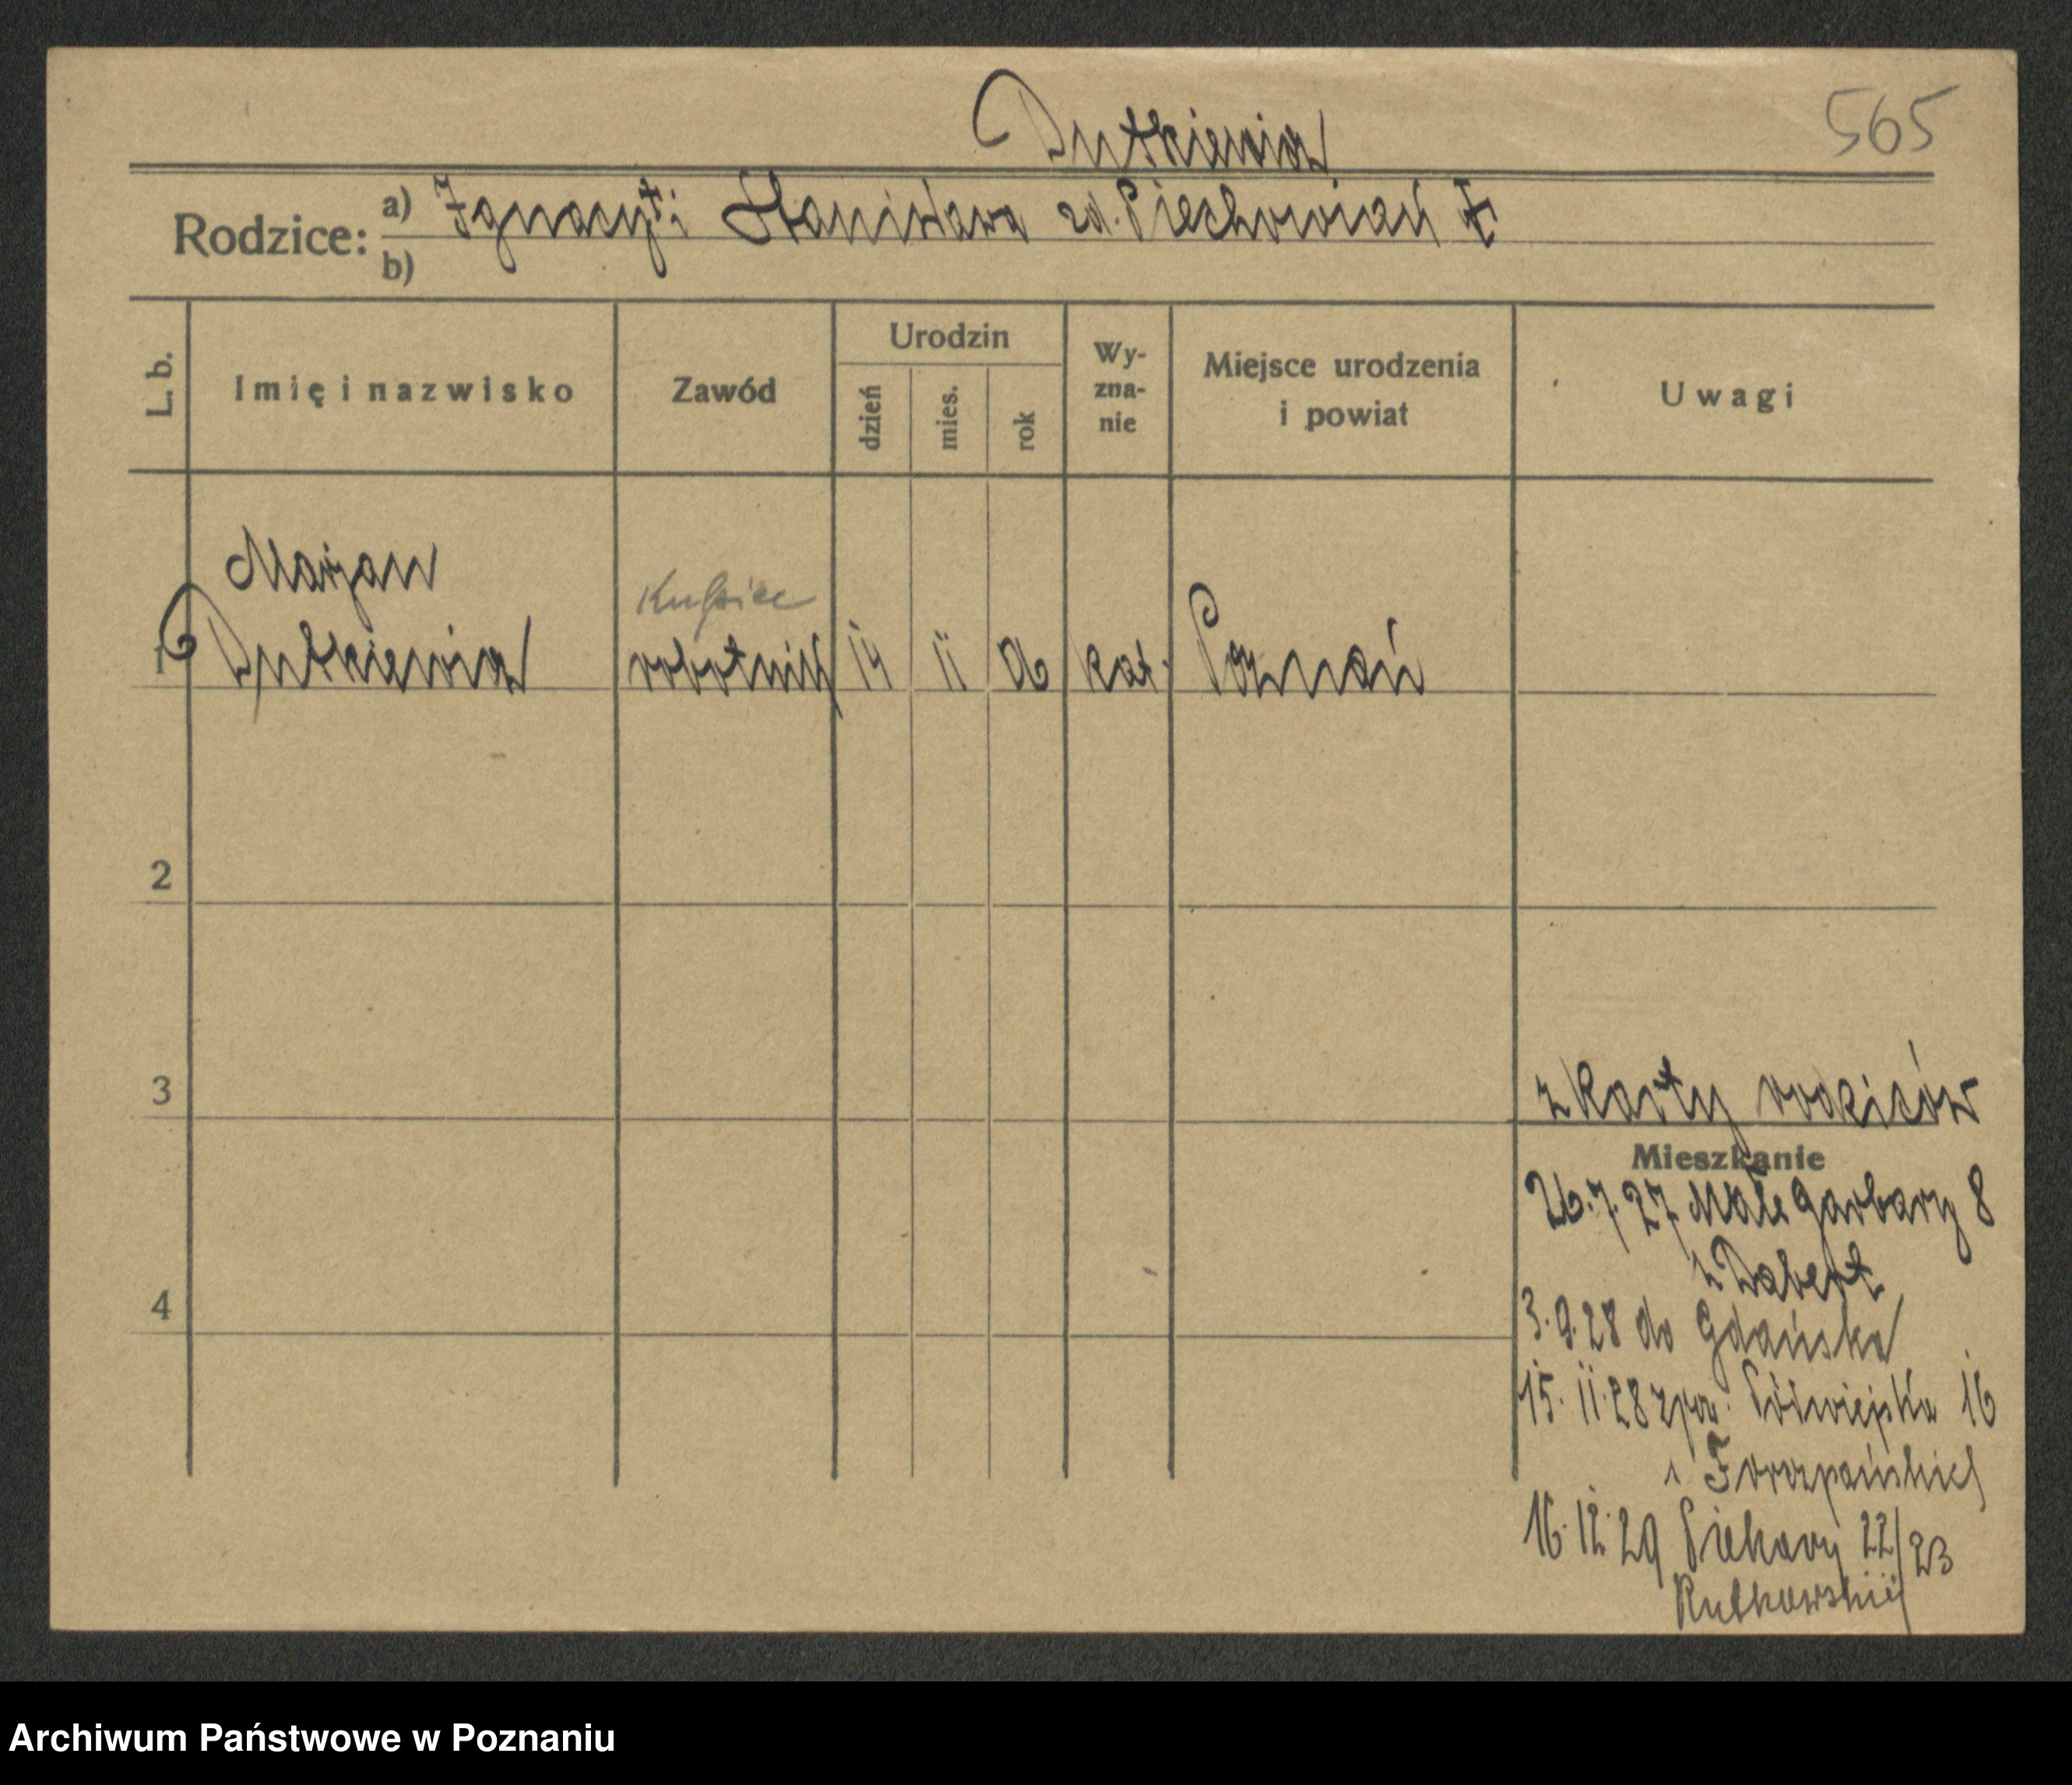 Dutkiewicz
565
Rodzice: a) Ignacy † i Stanisława zd. Piechowiak †
b)
L. b.
Imię i nazwisko
Zawód
Urodzin
dzień
mies.
rok
Wy-
zna-
nie
Miejsce urodzenia
i powiat
Uwagi
Marjan
Kupiec
1 Dutkiewicz robotnik 14 11 06 kat. Poznań
2
3
z karty rodziców
Mieszkanie
26.7.27 Małe Garbary 8
4
3.9.28 do Gdańska
15.11.28 zpow. Półwiejska 16
16.12.29 Piekary 22/23
Rutkowskiej
Archiwum Państwowe w Poznaniu